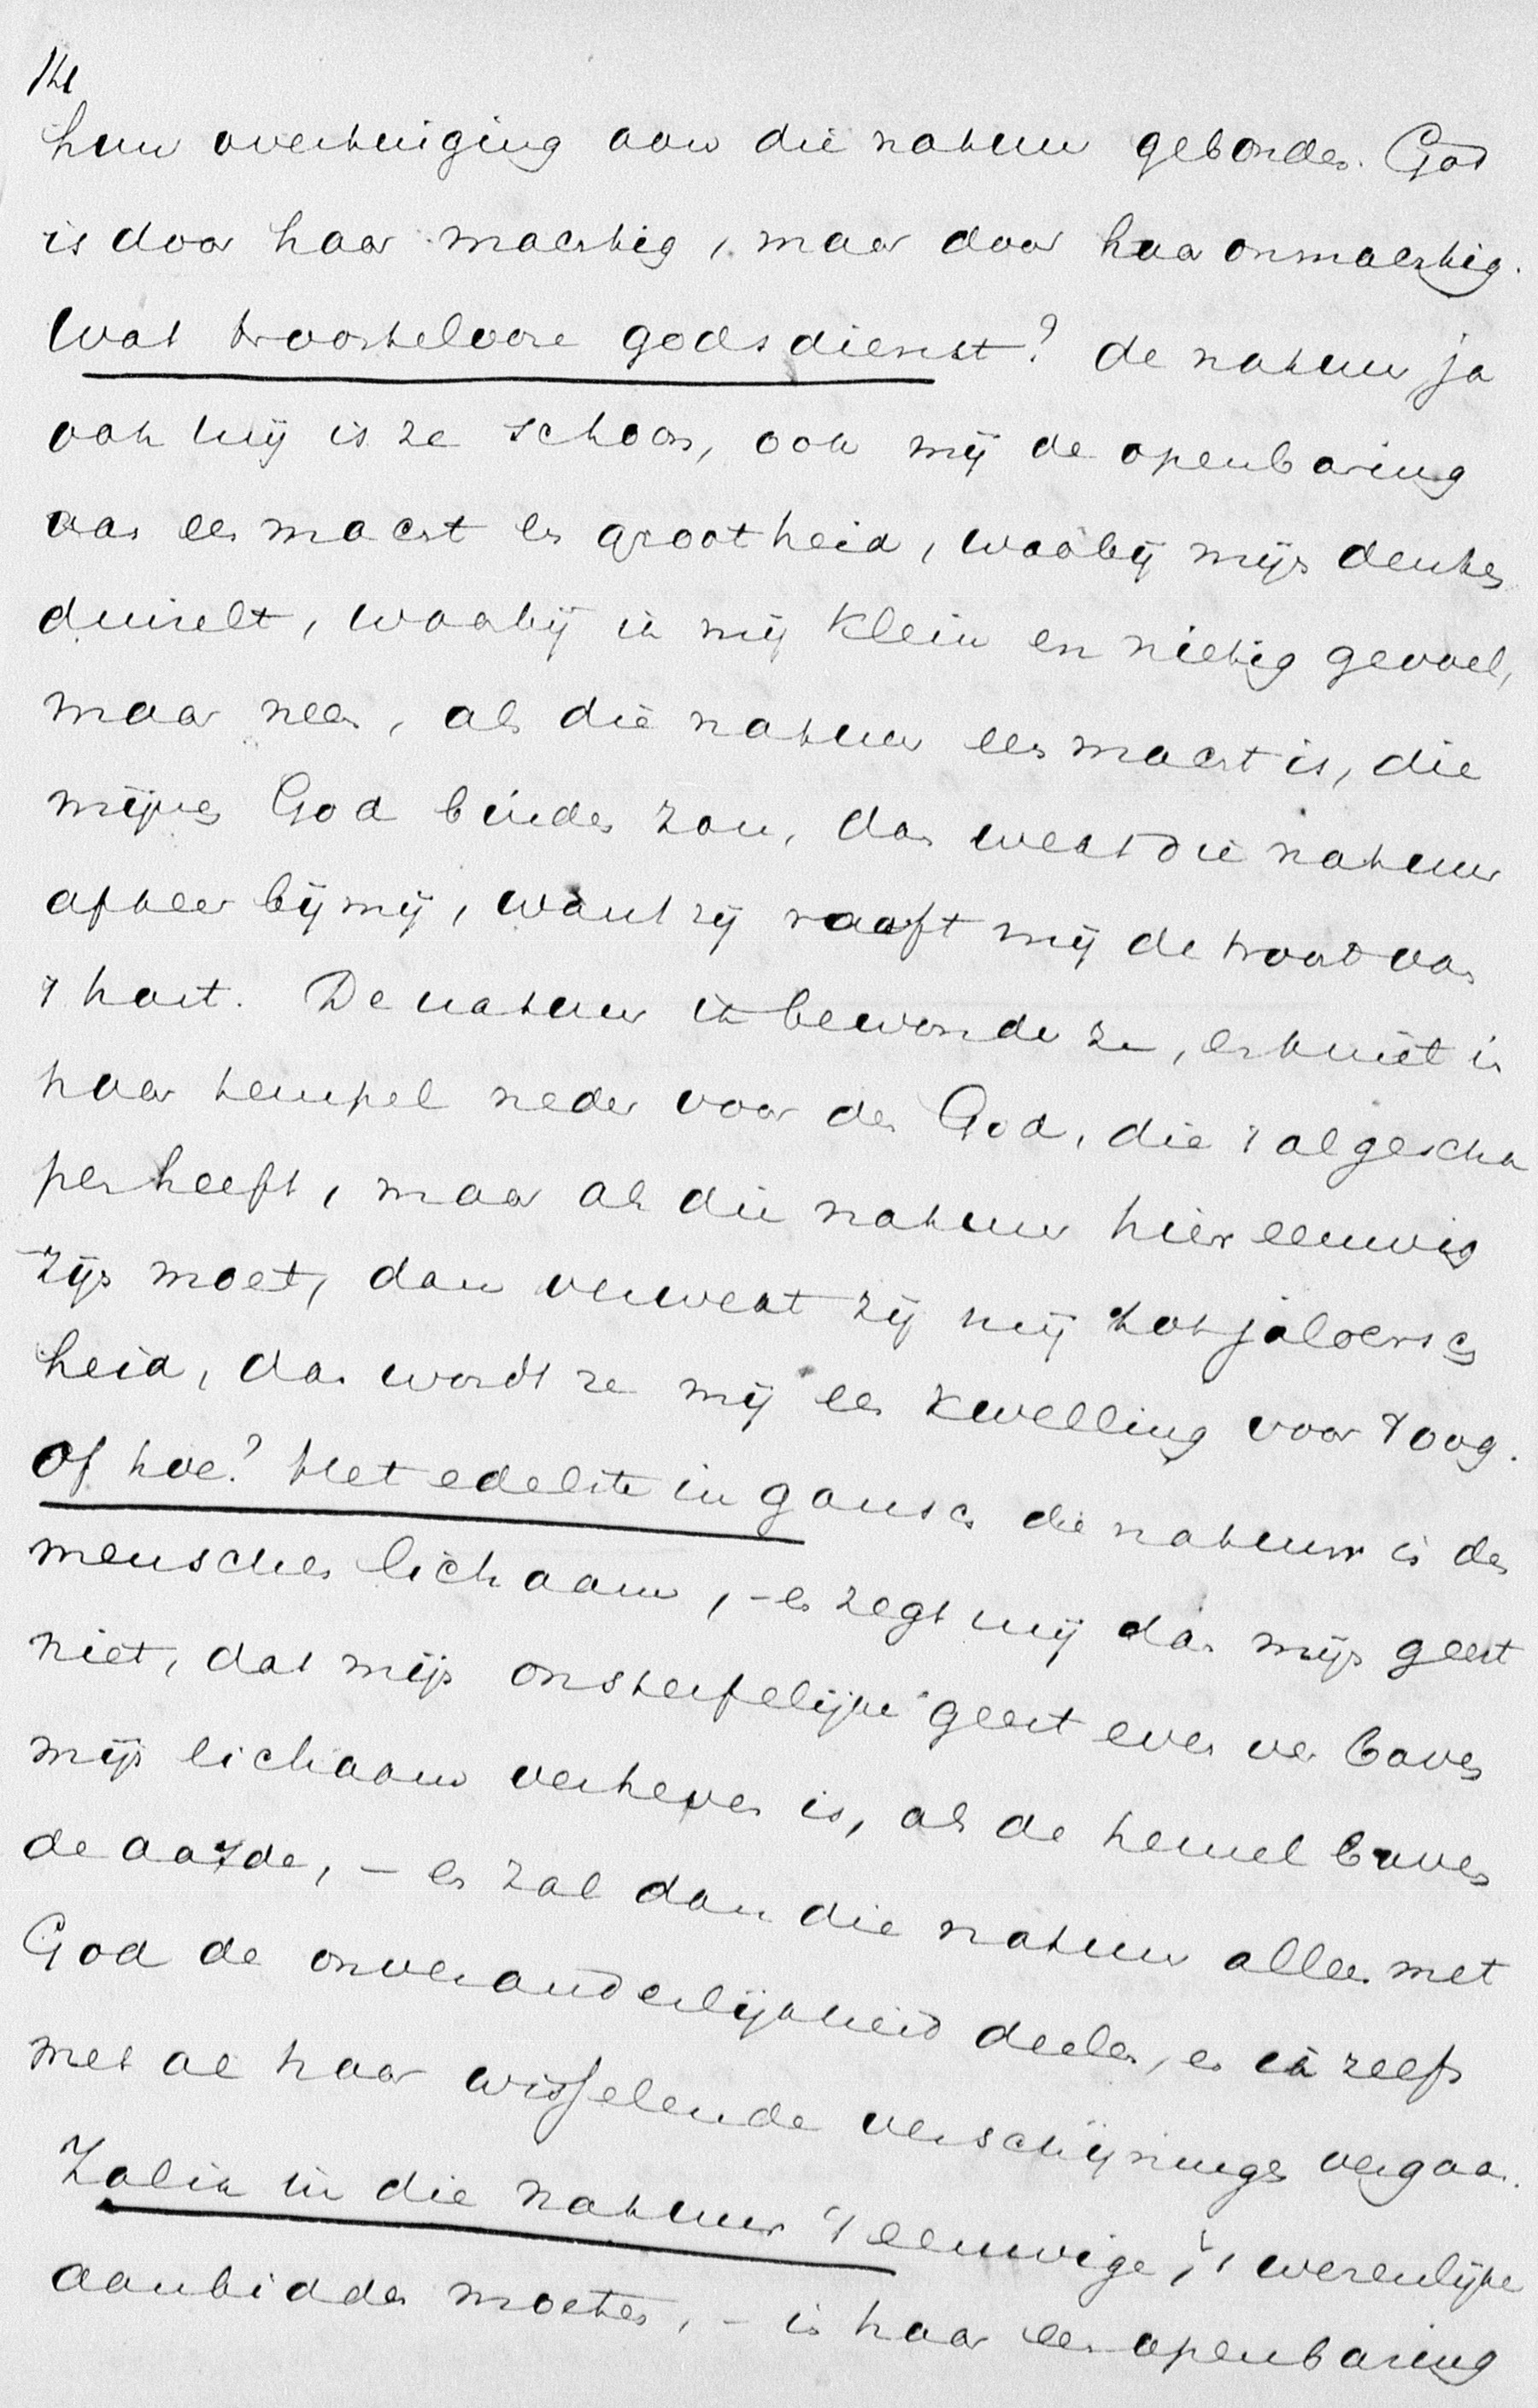 14
hun overtuiging aan die natuur gebonden. God
is door haar machtig, maar door haar onmachtig.
Wat troostelooze godsdienst? de natuur ja
ook mij is ze schoon, ook mij de openbaring
van een macht en grootheid, waarbij mijn denken
duizelt, waarbij ik mij klein en nietig gevoel,
maar neen, als die natuur een macht is, die
mijnen God binden zou, dan wekt die natuur
afkeer bij mij, want zij rooft mij de troost van
't hart. De natuur ik bewonder ze, en kniel in
haar tempel neder voor den God, die 't al gescha
pen heeft, maar als die natuur hier eeuwig
zijn moet, dan verwekt zij mij tot jaloersch
heid, dan wordt ze mij een kwelling voor 't oog.
Of hoe? Het edelste in gansch die natuur is des
menschen lichaam, - en zegt mij dan mijn geest
niet, dat mijn onsterfelijke geest even ver boven
mijn lichaam verheven is, als de hemel boven
de aarde, - en zal dan die natuur alleen met
God de onveranderlijkheid deelen, en ik zelfs
met al haar wisselende verschijningen vergaan.
Zal ik in die natuur 't eeuwige, 't wezenlijke
aanbidden moeten, - is haar een openbaring